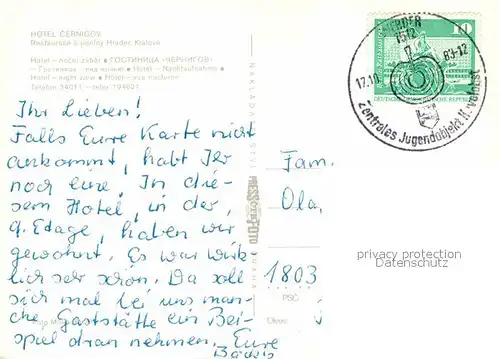 HOTEL ČERNIGOV
Restaurace a peniny Hradec Králové
Hotel – noční záběr • ГОСТИНИЦА «ЧЕРНИГОВ»
Hotel – Nachtaufnahme •
Hotel – night view • Hôtel – vue nocturne
Telefon 34011 – telex 194601
Ihr Lieben!
Falls Eure Karte nicht
ankommt, habt Ihr
noch eine. In die-
sem Hotel, in der
9. Etage, haben wir
gewohnt. Es war wirk-
lich sehr schön. Da soll
sich mal bei uns man-
che Gaststätte ein Bei-
spiel dran nehmen. Eure
NAKLADATELSTVÍ
PRESSFOTO
PRAHA
Fam.
Ola,
1803
PSČ
Okres
WERDER
1512
17.10.
83-12
Zentrales Jugendobjekt Havelobst
10
DEUTSCHE DEMOKRATISCHE REPUBLIK
privacy protection
Datenschutz